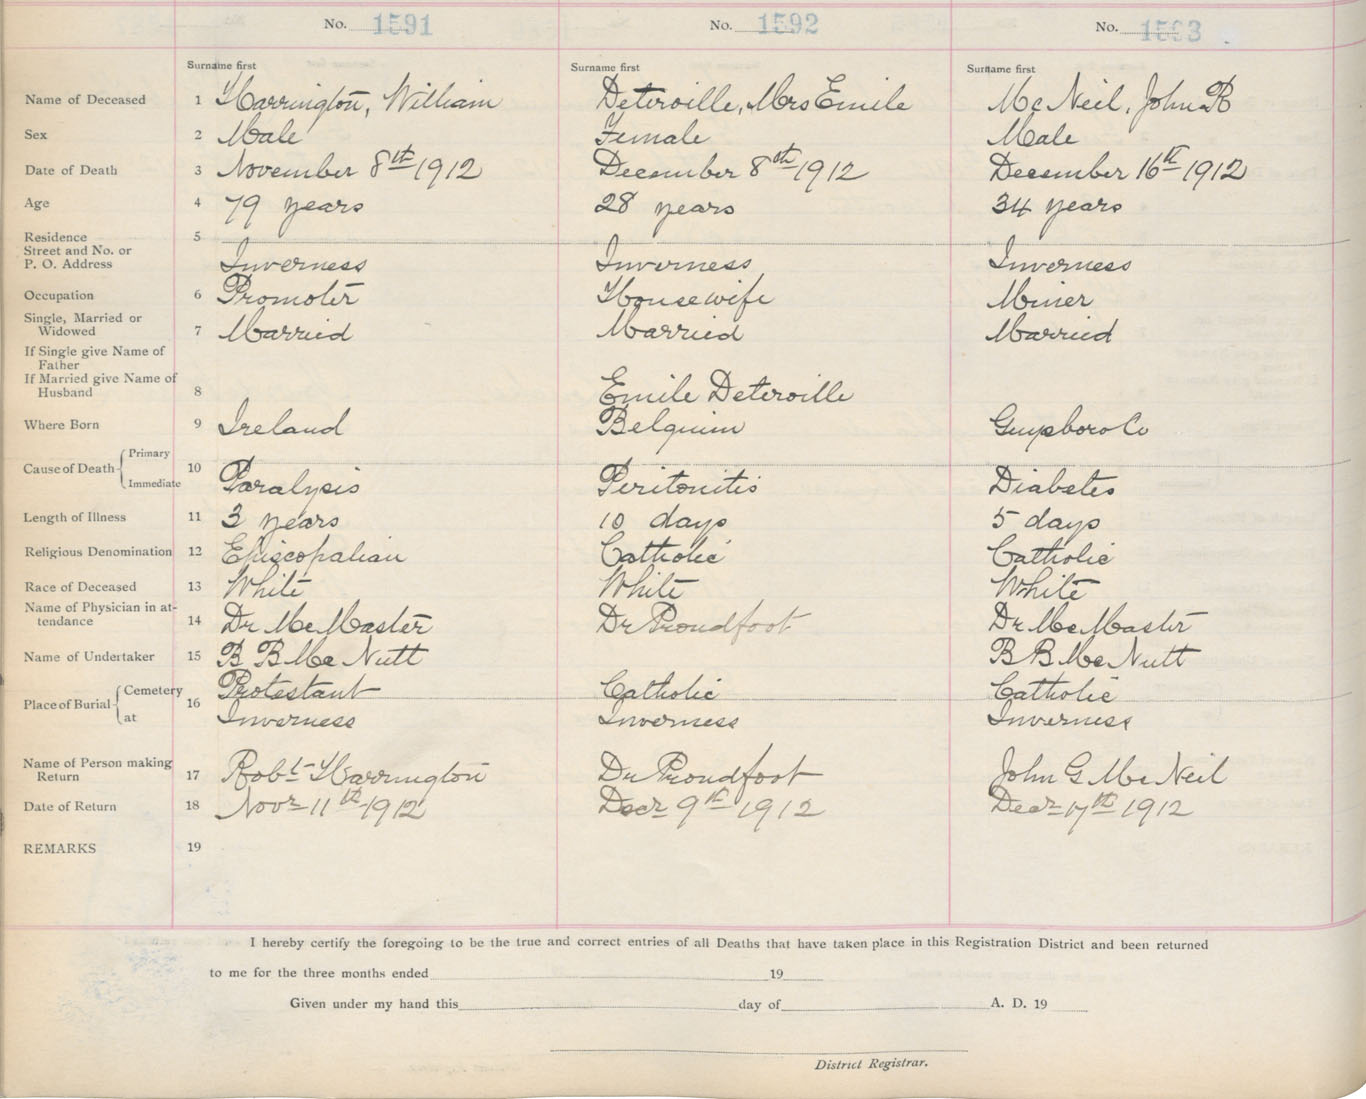 No. 1591 No. 1592 No. 1593
Surname first Surname first Surname first
Name of Deceased 1 Harrington, William Deterville, Mrs Emile McNeil, John R
Sex 2 Male Female Male
Date of Death 3 November 8th 1912 December 8th 1912 December 16th 1912
Age 4 79 years 28 years 34 years
Residence 5
Street and No. or
P. O. Address Inverness Inverness Inverness
Occupation 6 Promoter Housewife Miner
Single, Married or
Widowed 7 Married Married Married
If Single give Name of
Father
If Married give Name of
Husband 8 Emile Deterville
Where Born 9 Ireland Belguim Guysboro Co
Primary
Cause of Death 10
Immediate Paralysis Peritonitis Diabetes
Length of Illness 11 3 years 10 days 5 days
Religious Denomination 12 Episcopalian Catholic Catholic
Race of Deceased 13 White White White
Name of Physician in at-
tendance 14 Dr McMaster Dr Proudfoot Dr McMaster
Name of Undertaker 15 B B McNutt B B McNutt
Cemetery Protestant Catholic Catholic
Place of Burial 16
at Inverness Inverness Inverness
Name of Person making
Return 17 Robt Harrington Dr Proudfoot John G McNeil
Date of Return 18 Novr 11th 1912 Decr 9th 1912 Decr 17th 1912
REMARKS 19
I hereby certify the foregoing to be the true and correct entries of all Deaths that have taken place in this Registration District and been returned
to me for the three months ended 19
Given under my hand this day of A. D. 19
District Registrar.